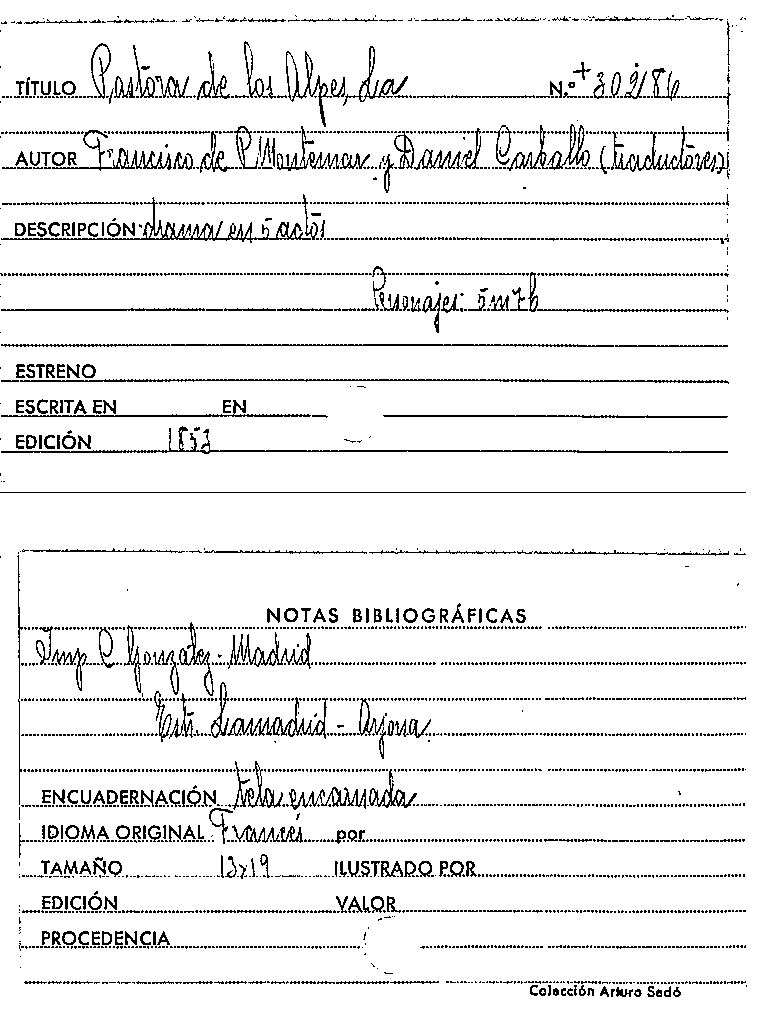 TÍTULO Pastora de los Alpes, La N.º + 302186
AUTOR Francisco de P. Montemar y Daniel Carballo (traductores)
DESCRIPCIÓN drama en 5 actos
Personajes: 5m7h
ESTRENO
ESCRITA EN EN
EDICIÓN 1853
NOTAS BIBLIOGRÁFICAS
Imp C Gonzalez - Madrid
Estr. Lamadrid - Arjona
ENCUADERNACIÓN tela encarnada
IDIOMA ORIGINAL Francés por
TAMAÑO 13x19 ILUSTRADO POR
EDICIÓN VALOR
PROCEDENCIA
Colección Arturo Sedó